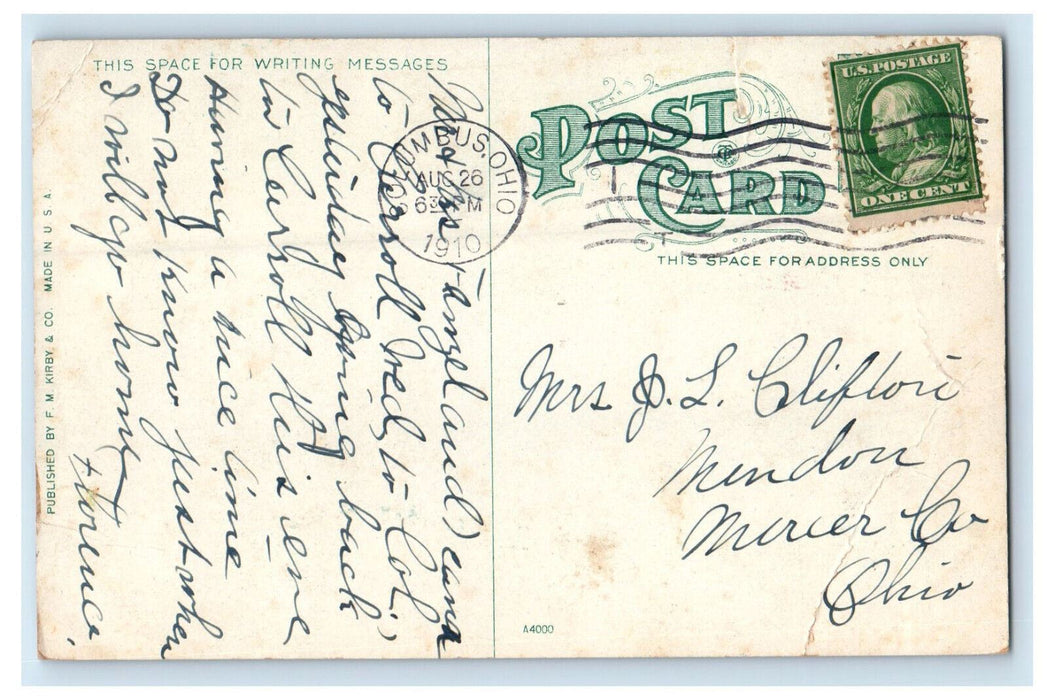 THIS SPACE FOR WRITING MESSAGES
POST CARD
THIS SPACE FOR ADDRESS ONLY
U.S. POSTAGE
ONE CENT
COLUMBUS, OHIO
AUG 26
6 30 PM
1910
to Carroll Wed, to Col.
yesterday going back
to Carroll this eve
Having a nice time
Do not know just when
I will go home
Florence.
Mrs J. L. Clifton
Mendon
Mercer Co
Ohio
PUBLISHED BY F. M. KIRBY & CO. MADE IN U. S. A.
A4000